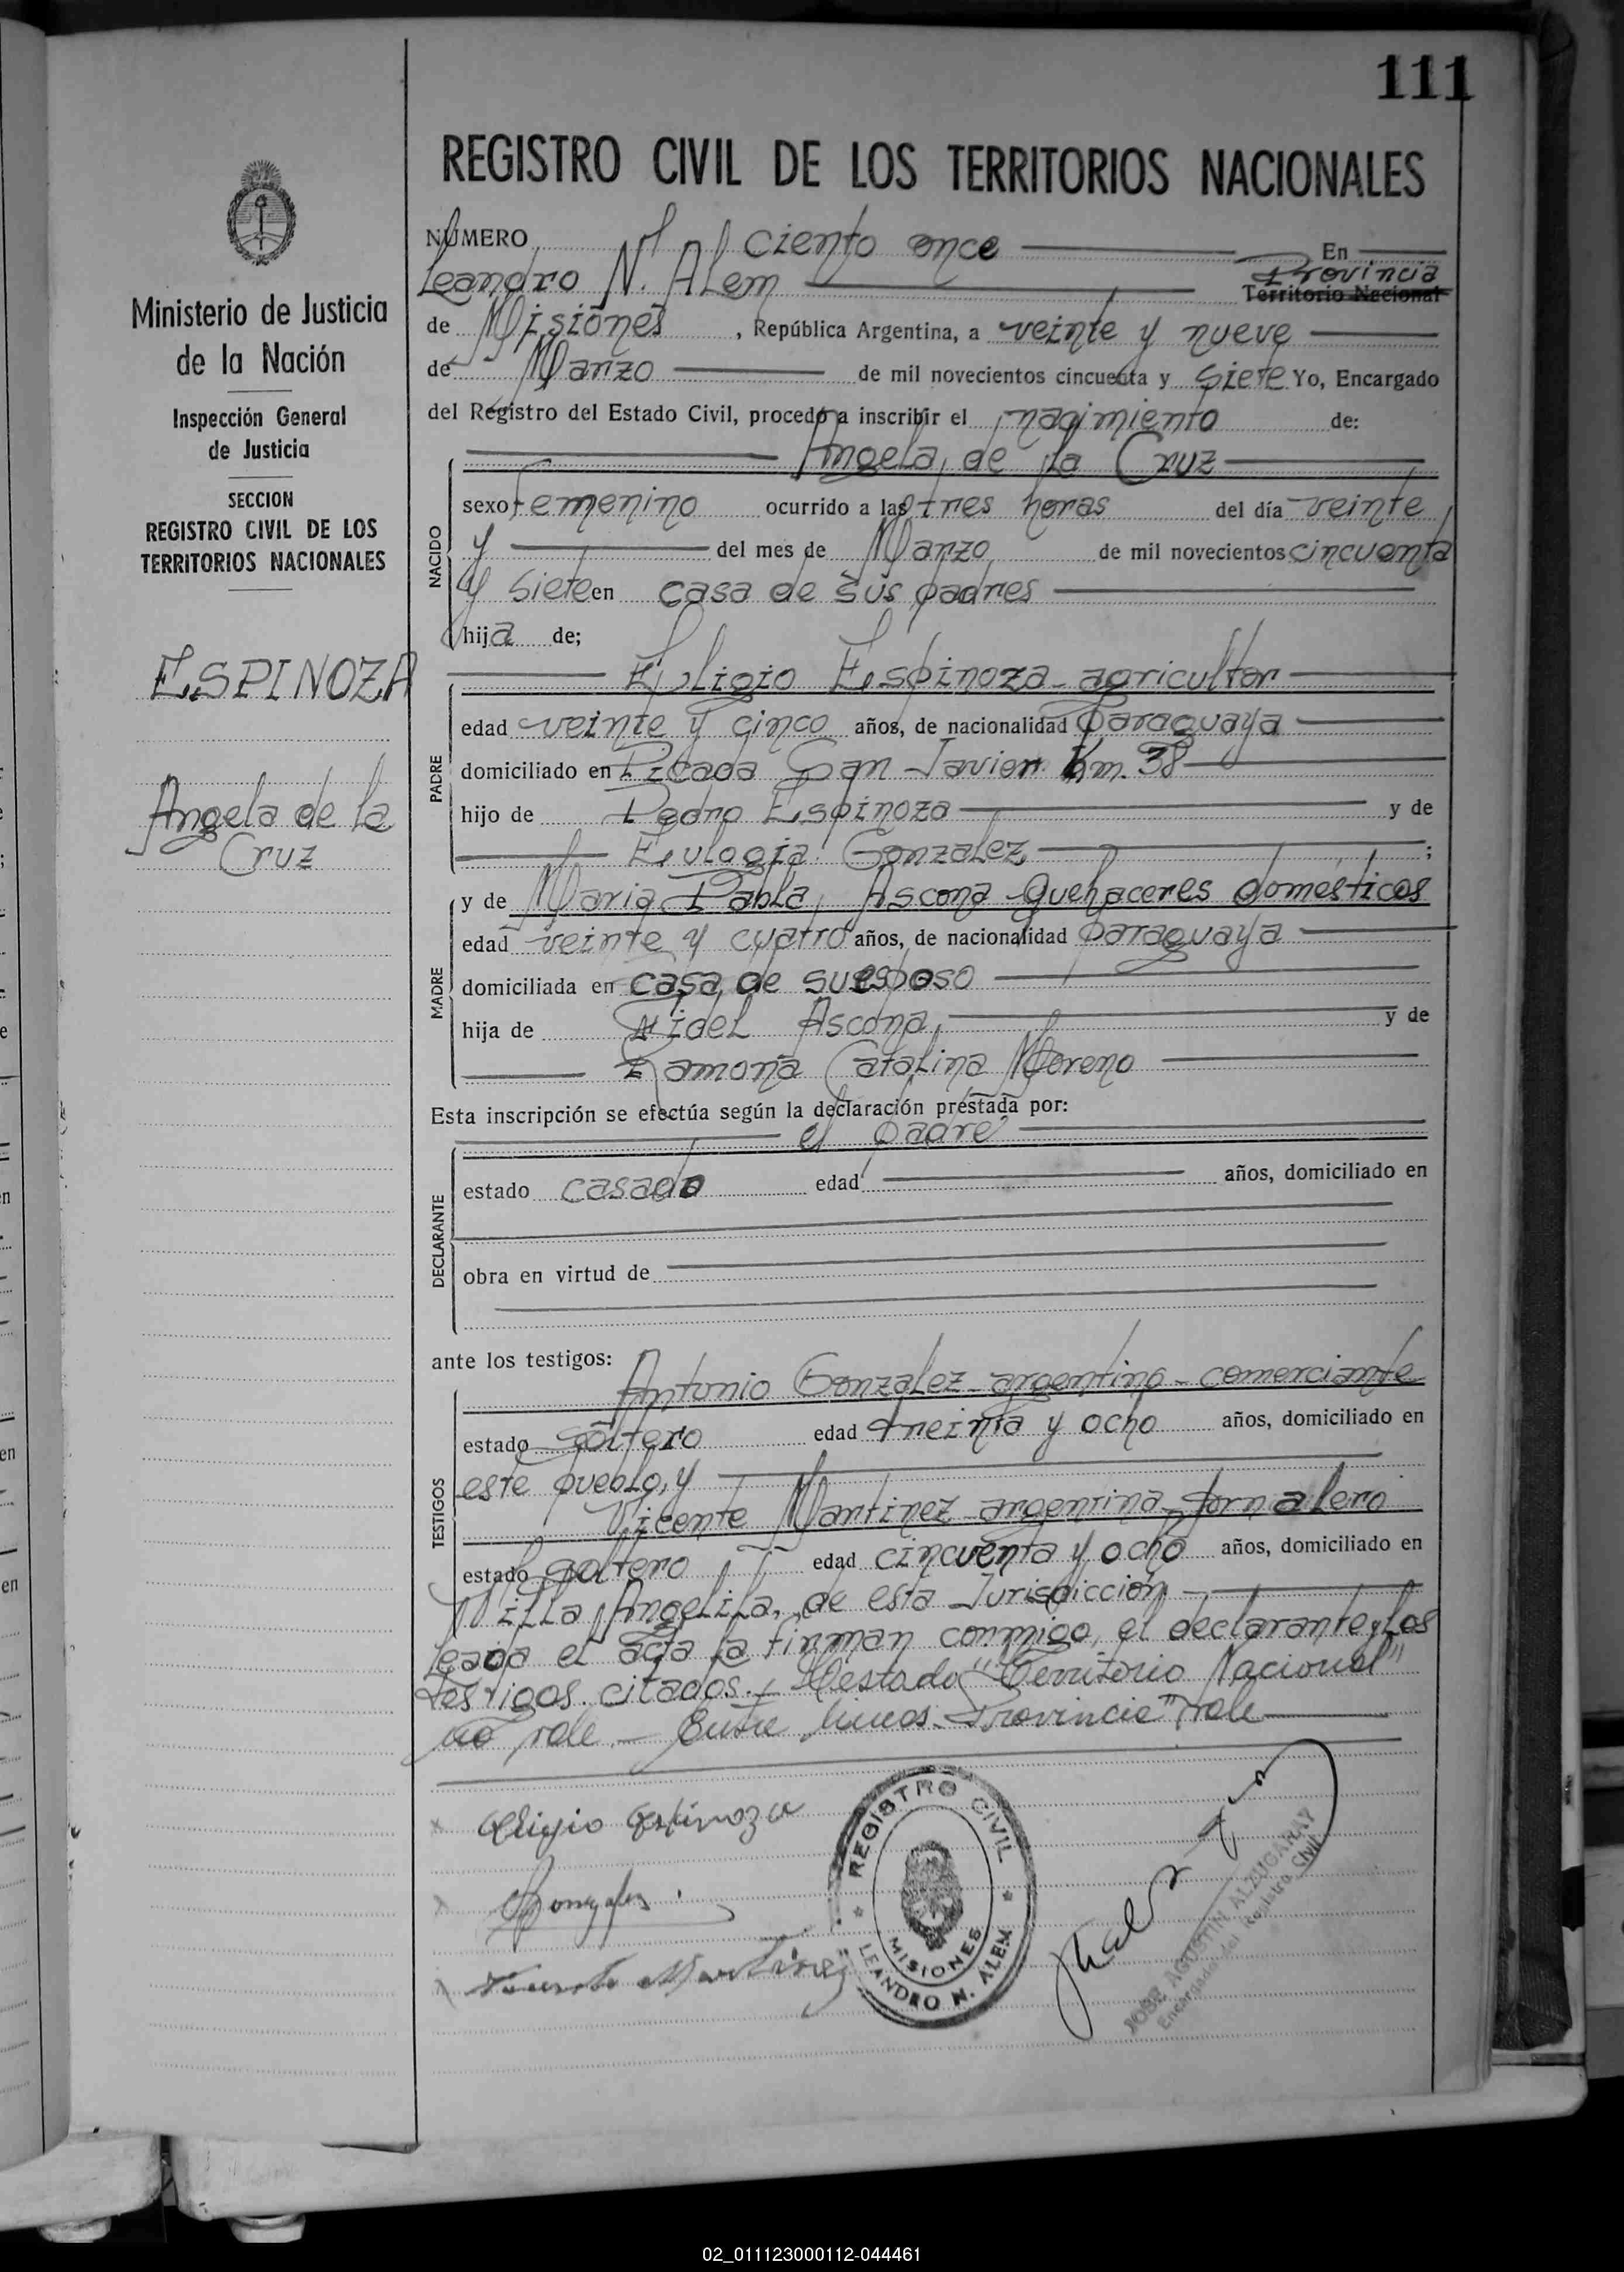 111
REGISTRO CIVIL DE LOS TERRITORIOS NACIONALES
Ministerio de Justicia
de la Nación
Inspección General
de Justicia
SECCION
REGISTRO CIVIL DE LOS
TERRITORIOS NACIONALES
ESPINOZA
Angela de la
Cruz
NÚMERO ciento once En
Leandro N. Alem Provincia
Territorio Nacional
de Misiones, República Argentina, a veinte y nueve
de Marzo de mil novecientos cincuenta y siete Yo, Encargado
del Registro del Estado Civil, procedo a inscribir el nacimiento de:
Angela de la Cruz
NACIDO
sexo femenino ocurrido a las tres horas del día veinte
y del mes de Marzo de mil novecientos cincuenta
y siete en casa de sus padres
hija de;
Eligio Espinoza - agricultor
PADRE
edad veinte y cinco años, de nacionalidad paraguaya
domiciliado en Picada San Javier Km. 38
hijo de Pedro Espinoza y de
Eulogia Gonzalez ;
MADRE
y de Maria Pabla Ascona Quehaceres domésticos
edad veinte y cuatro años, de nacionalidad paraguaya
domiciliada en casa de su esposo
hija de Fidel Ascona, y de
Ramona Catalina Moreno
Esta inscripción se efectúa según la declaración prestada por:
el padre
DECLARANTE
estado casado edad años, domiciliado en
obra en virtud de
ante los testigos:
Antonio Gonzalez - argentino - comerciante
TESTIGOS
estado soltero edad treinta y ocho años, domiciliado en
este pueblo, y
Vicente Martinez argentino - jornalero
estado soltero edad cincuenta y ocho años, domiciliado en
Villa Angelita, de esta Jurisdicción
Leada el acta la firman conmigo, el declarante y los
testigos citados. Testado "Territorio Nacional"
no vale. - Entre lineas - Provincia" vale
Eligio Espinoza
Gonzalez
Vicente Martinez
REGISTRO CIVIL
MISIONES
LEANDRO N. ALEM
JOSE AGUSTIN ALZUGARAY
Encargado del Registro Civil
02_011123000112-044461